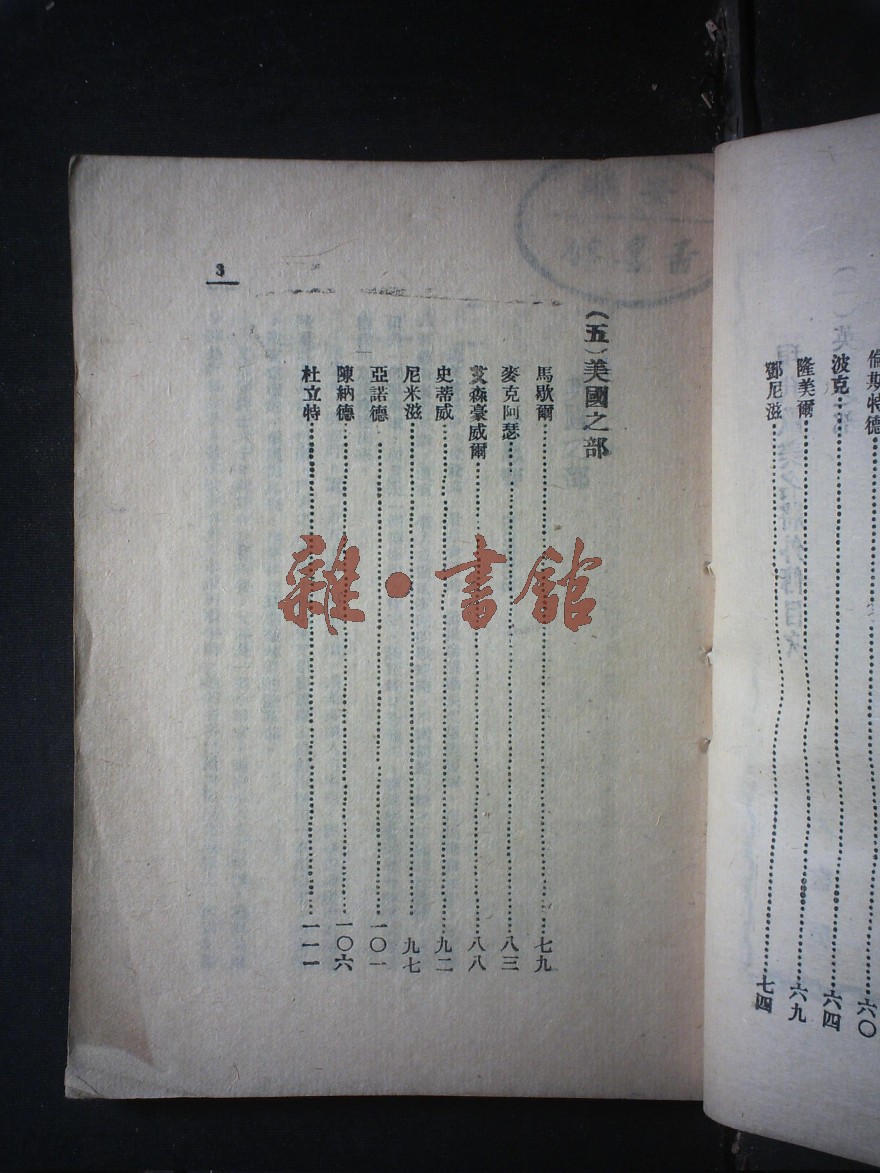 倫斯特德……六〇
波克……六四
隆美爾……六九
鄧尼滋……七四
3
(五)美國之部
馬歇爾……七九
麥克阿瑟……八三
艾森豪威爾……八八
史蒂威……九二
尼米滋……九七
亞諾德……一〇一
陳納德……一〇六
杜立特……一一一
雜·書館